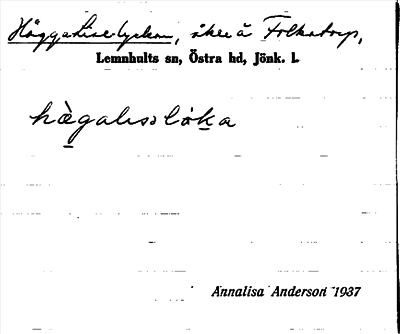 Häggalisslyckan, åker å Folkatorp,
Lemnhults sn, Östra hd, Jönk. l.
hàgalɩssløka
Annalisa Anderson 1937